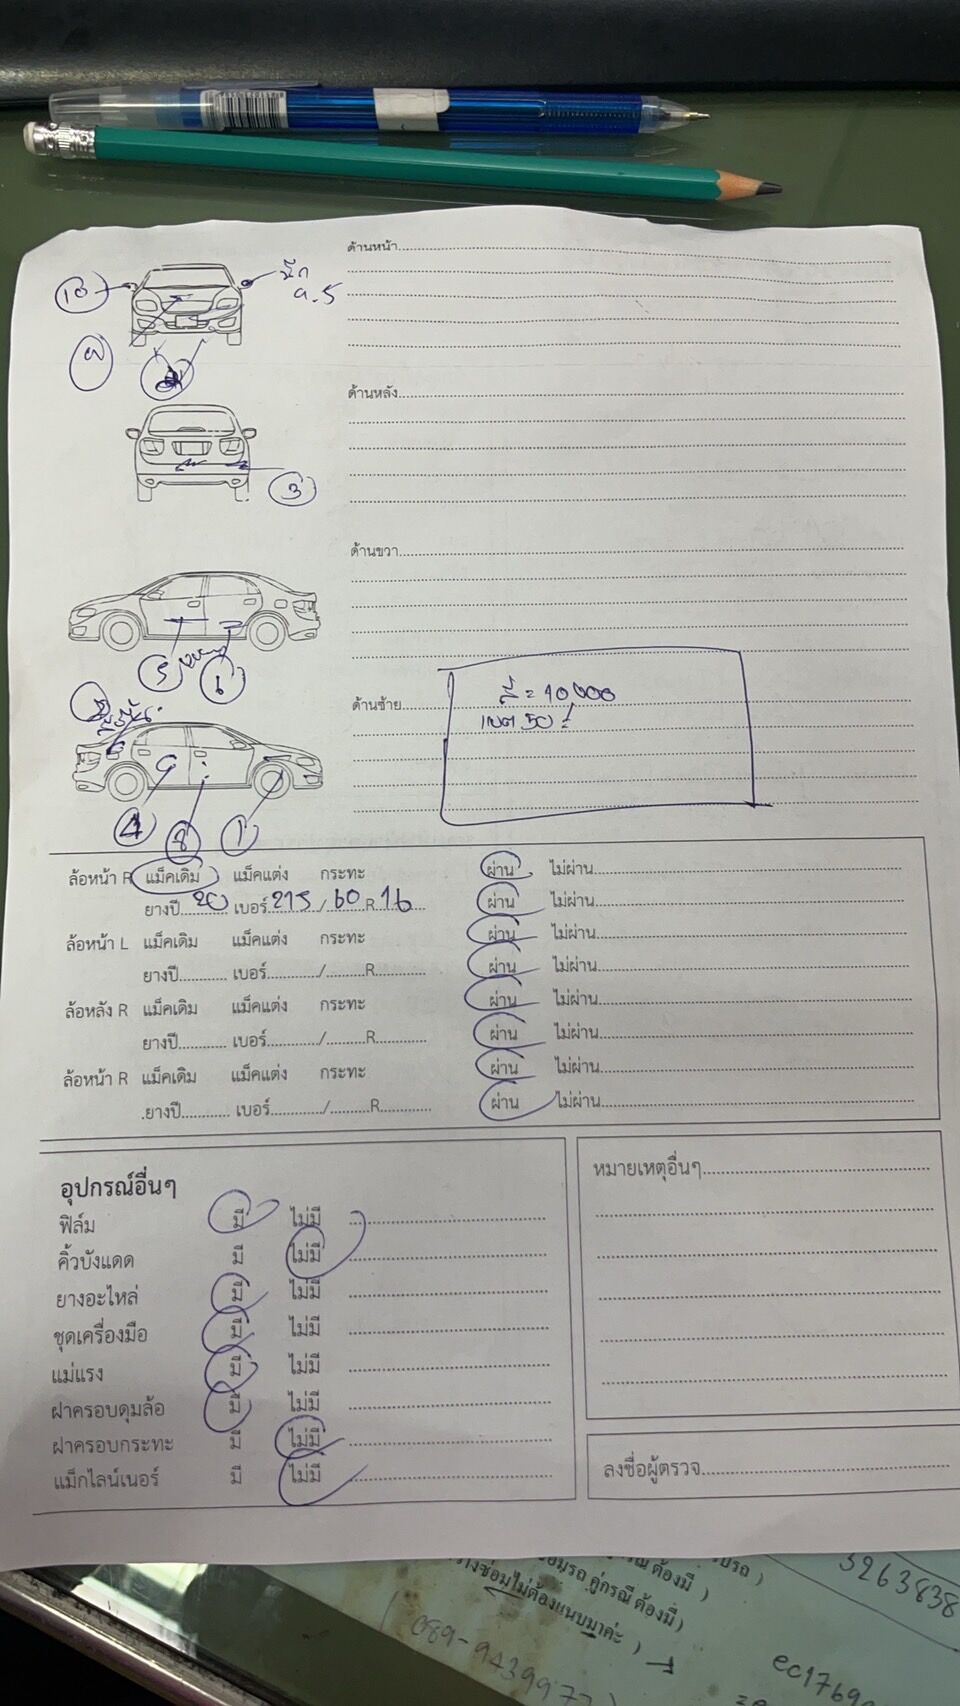 ด้านหน้า
10
ด้านหลัง
3
ด้านขวา
5
6
ด้านซ้าย
สี = 10,000
4
8
1
ล้อหน้า R แม็คเดิม แม็คแต่ง กระทะ ผ่าน ไม่ผ่าน
ยางปี 20 เบอร์ 215 / 60 R 16 ผ่าน ไม่ผ่าน
ล้อหน้า L แม็คเดิม แม็คแต่ง กระทะ ผ่าน ไม่ผ่าน
ยางปี เบอร์ / R ผ่าน ไม่ผ่าน
ล้อหลัง R แม็คเดิม แม็คแต่ง กระทะ ผ่าน ไม่ผ่าน
ยางปี เบอร์ / R ผ่าน ไม่ผ่าน
ล้อหน้า R แม็คเดิม แม็คแต่ง กระทะ ผ่าน ไม่ผ่าน
ยางปี เบอร์ / R ผ่าน ไม่ผ่าน
อุปกรณ์อื่นๆ
ฟิล์ม มี ไม่มี
คิ้วบังแดด มี ไม่มี
ยางอะไหล่ มี ไม่มี
ชุดเครื่องมือ มี ไม่มี
แม่แรง มี ไม่มี
ฝาครอบดุมล้อ มี ไม่มี
ฝาครอบกระทะ มี ไม่มี
แม็กไลน์เนอร์ มี ไม่มี
หมายเหตุอื่นๆ
ลงชื่อผู้ตรวจ
3263838
คู่กรณี ต้องมี )
ซ่อมไม่ต้องแนบมาค่ะ )